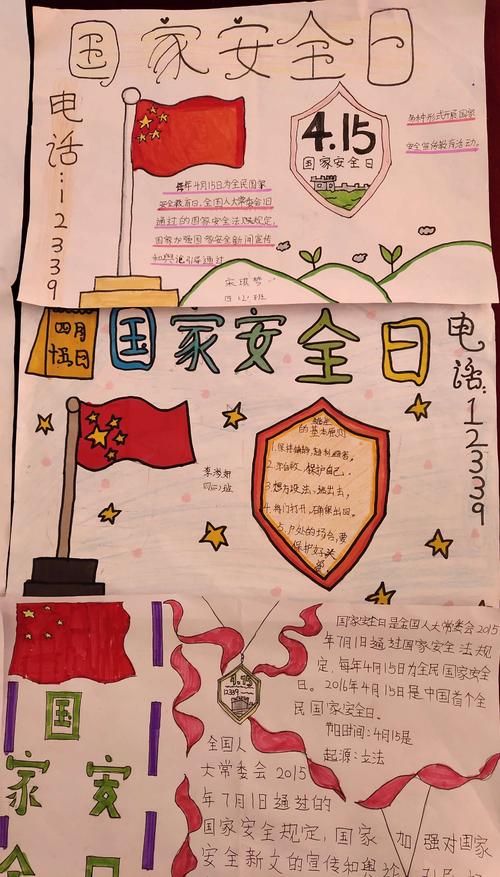 国家安全日
电话:12339
4.15
国家安全日
各种形式开展国家
安全宣传教育活动。
每年4月15日为全民国家
安全教育日,全国人大常委会1日
通过的国家安全法规规定,
国家加强国家安全新闻宣传
和舆论引导通过
宋琪梦
四(2)班
四月
十五日
国家安全日
电话:12339
李鸿郑
四(二)班
的基本原则
1.保持镇静,
2.保护自己.
3.想方设法,逃出去,
4.将门打开,确保出口。
5.户外的场合,要
保护好头
部。
国家安全日
4.15
12339
国家安全日是全国人大常委会2015
年7月1日通过国家安全法规
定,每年4月15日为全民国家安全
日。2016年4月15日是中国首个全
民国家安全日。
节日时间:4月15是
起源:立法
全国人
大常委会2015
年7月1日通过的
国家安全规定,国家加强对国家
安全新文的宣传和舆论引导